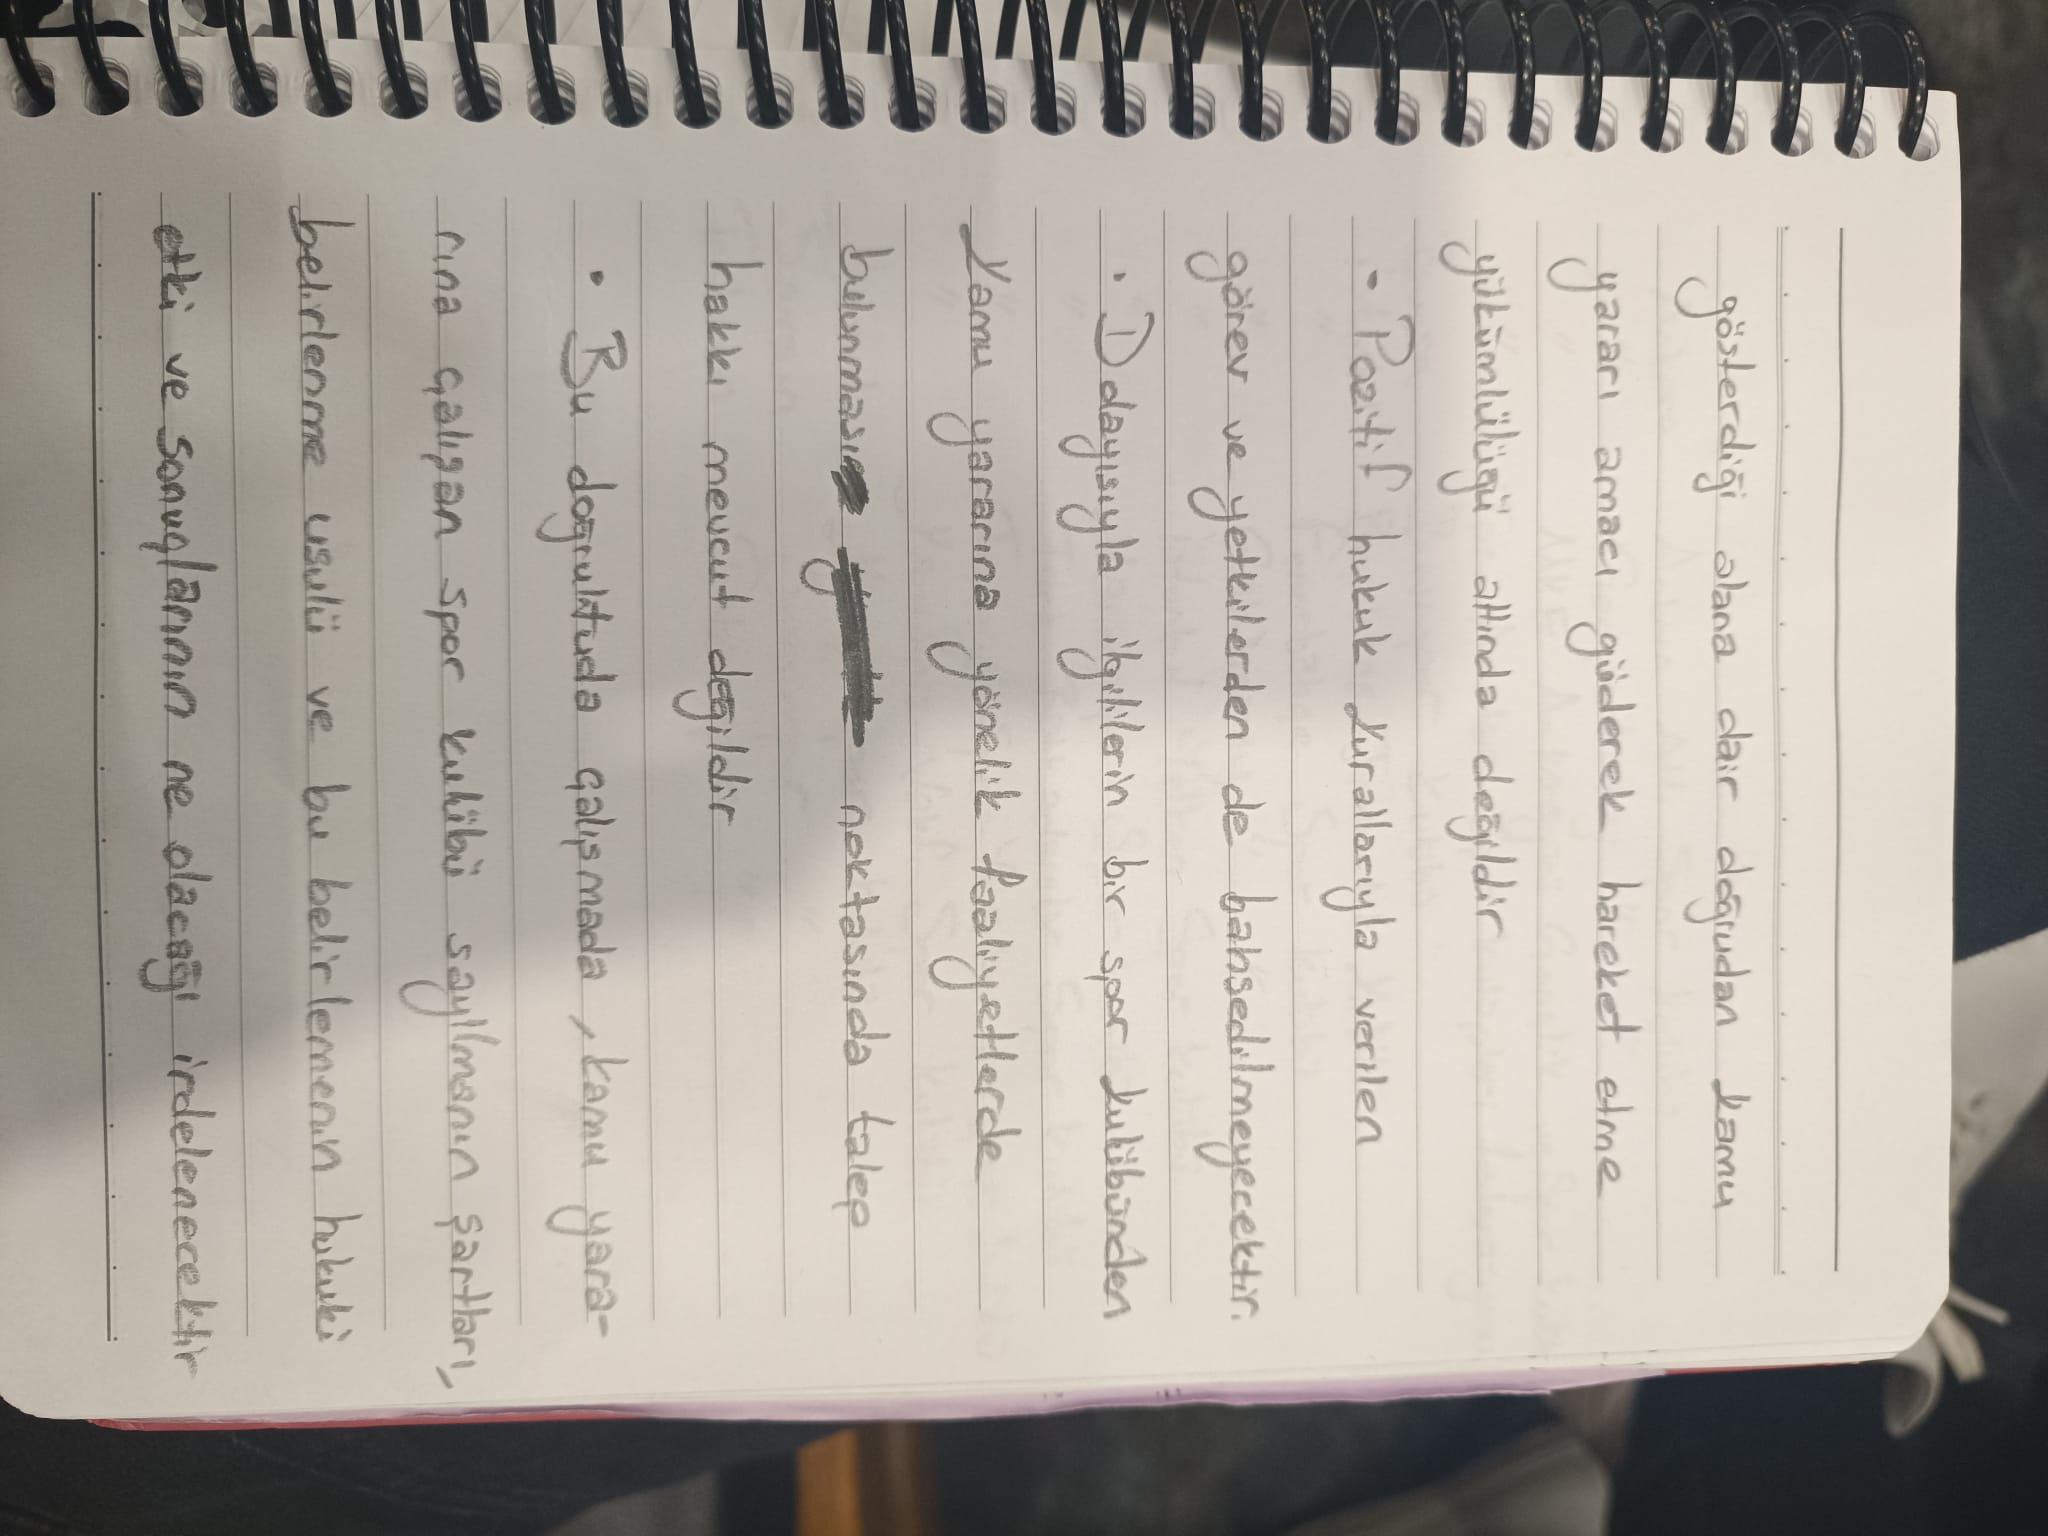 gösterdiği alana dair doğrudan kamu
yararı amacı güderek hareket etme
yükümlülüğü altında değildir
- Pozitif hukuk kurallarıyla verilen
görev ve yetkilerden de bahsedilmeyecektir.
• Dolayısıyla ilgililerin bir spor kulübünden
kamu yararına yönelik faaliyetlerde
bulunması noktasında talep
hakkı mevcut değildir
• Bu doğrultuda çalışmada, kamu yara-
rına çalışan spor kulübü sayılmanın şartları,
belirlenme usulü ve bu belirlemenin hukuki
etki ve sonuçlarının ne olacağı irdelenecektir